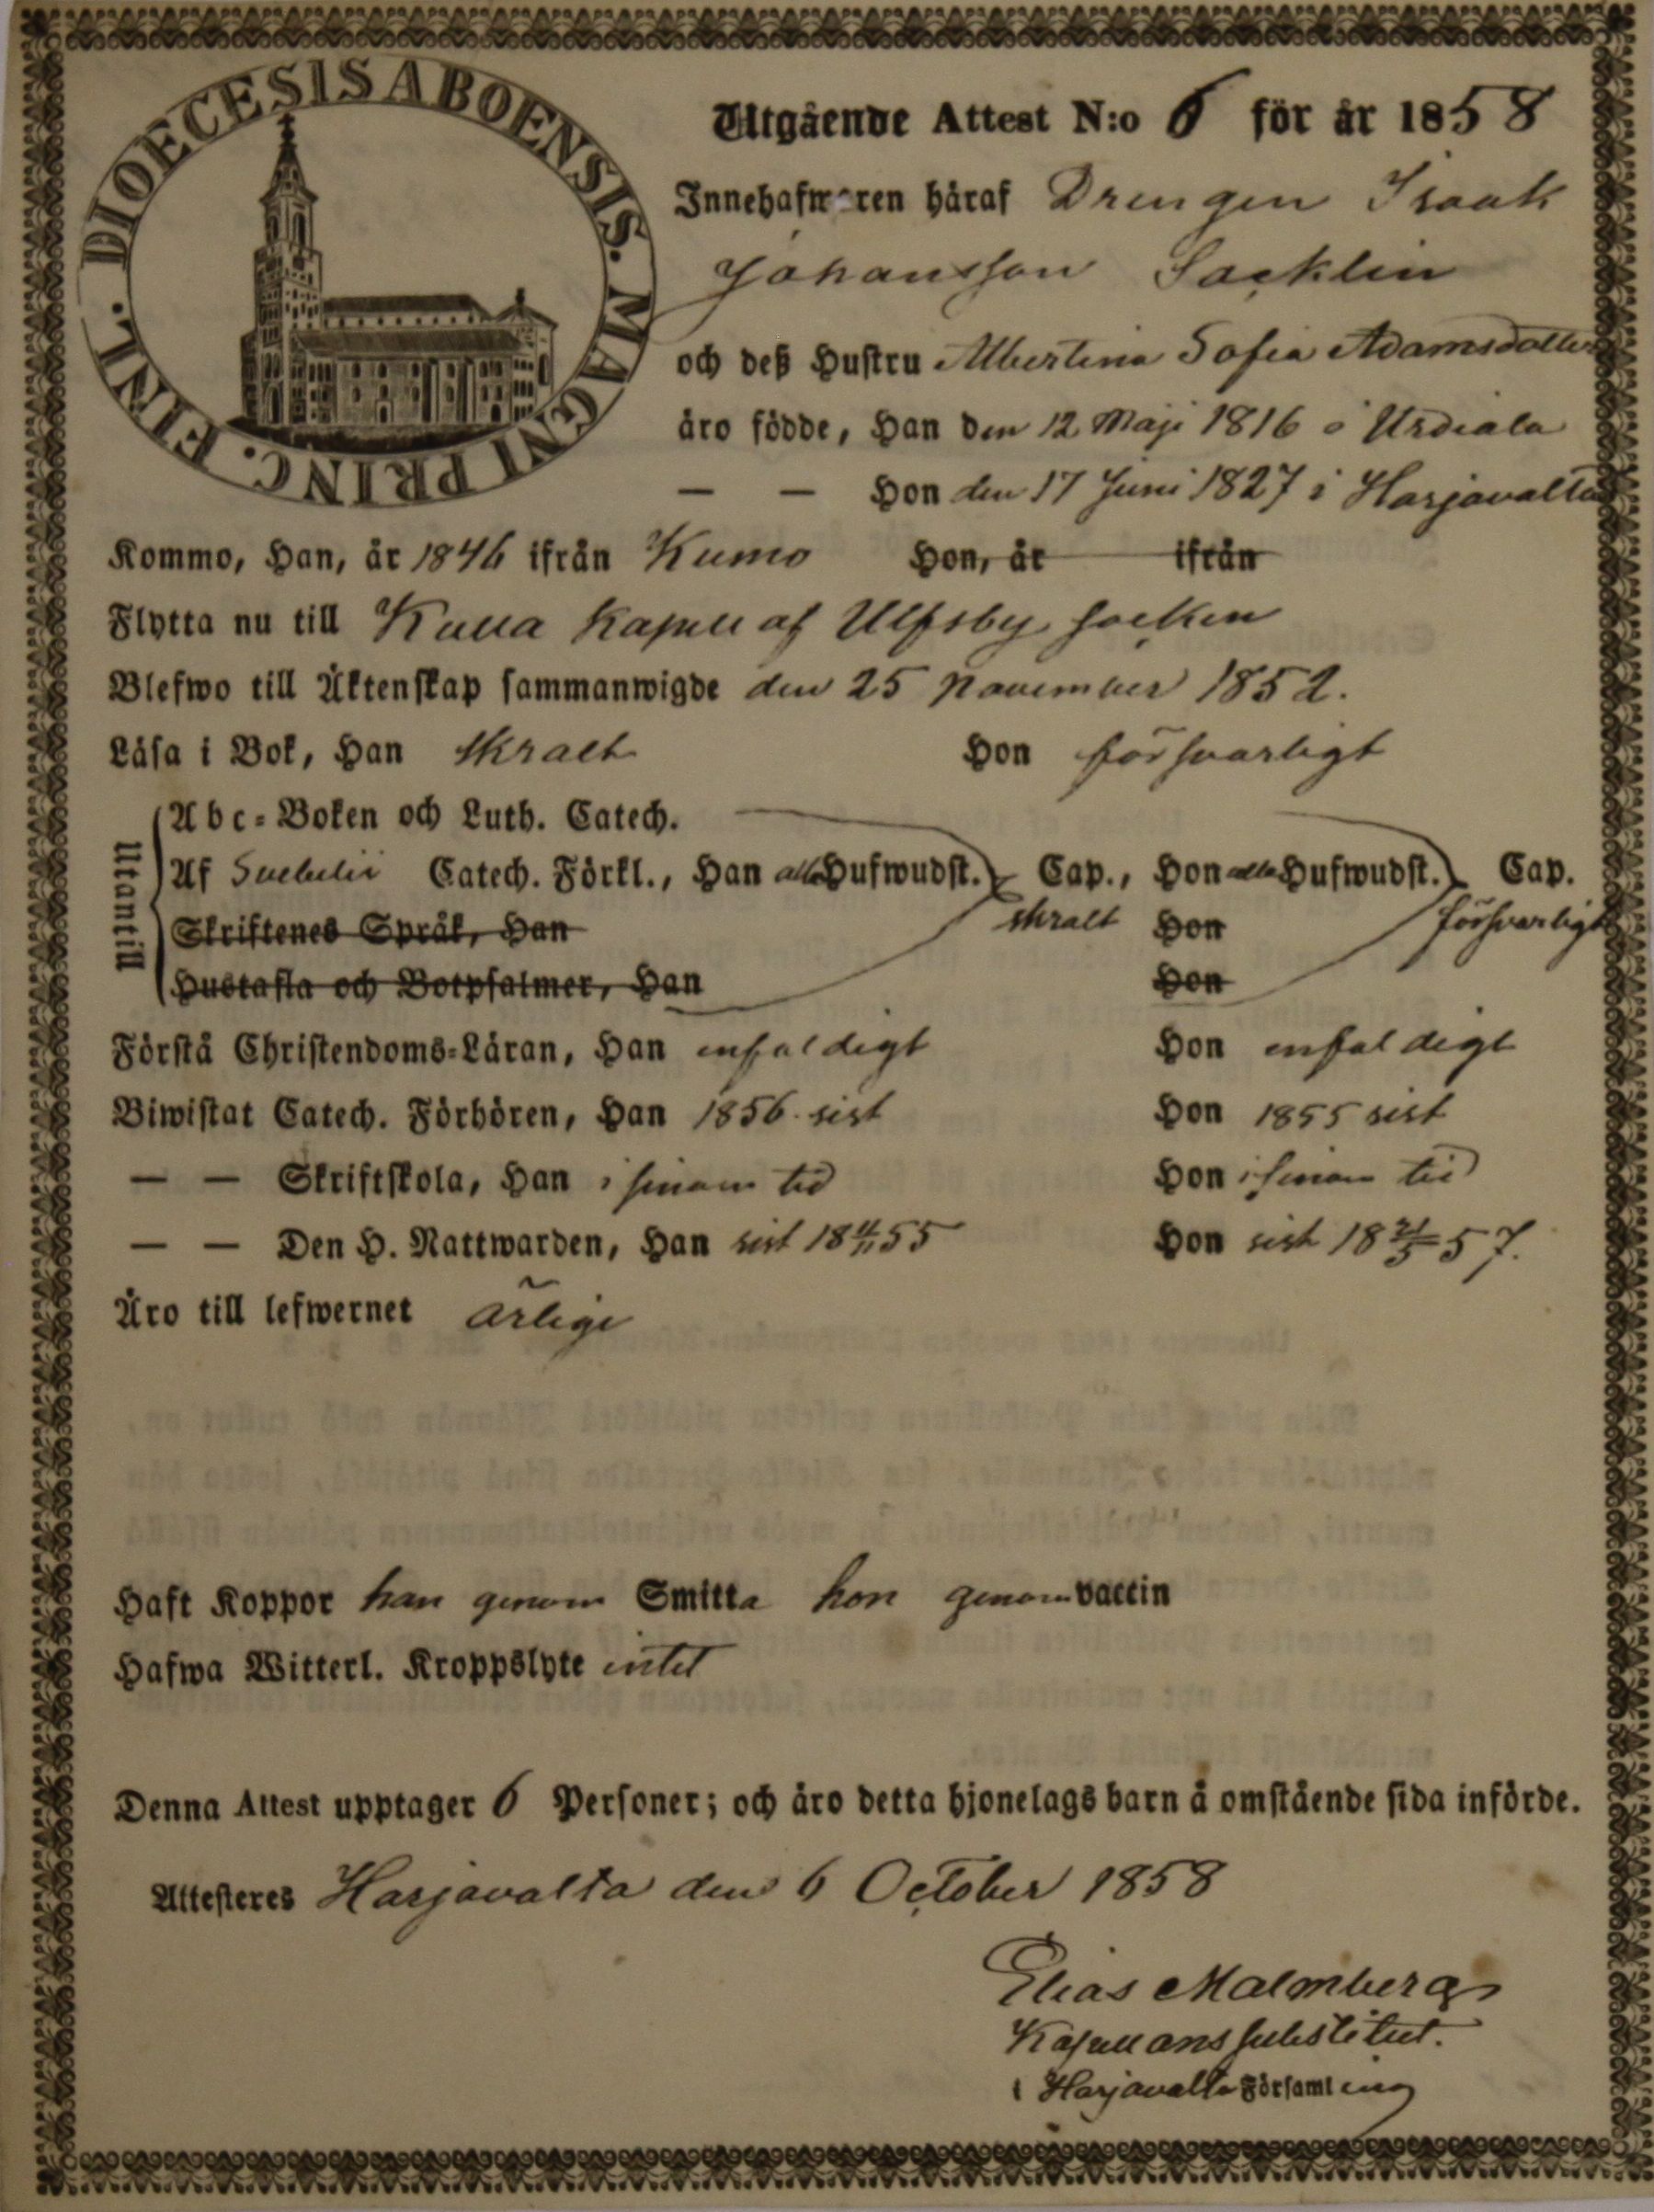 DIOECESIS ABOENSIS. MAGNI PRINC. FINL.
Utgående Attest N:o 6 för år 1858
Innehafwaren häraf Drengen Isaak
Johansson Säcklin
och deß Hustru Albertina Sofia Adamsdotter
äro födde, Han den 12 Maji 1816 i Urdiala
— — Hon den 17 Juni 1827 i Harjavalta
Kommo, Han, år 1846 ifrån Kumo Hon, år ifrån
Flytta nu till Kulla Kapell af Ulfsby socken
Blefwo till Äktenskap sammanwigde den 25 November 1852.
Läsa i Bok, Han skralt Hon försvarligt
Utantill
Abc-Boken och Luth. Catech.
Af Svebilii Catech. Förkl., Han alla Hufwudst. Cap., Hon alla Hufwudst. Cap.
Skriftenes Språk, Han skralt Hon försvarligt
Hustafla och Botpsalmer, Han Hon
Förstå Christendoms-Läran, Han enfaldigt Hon enfaldigt
Biwistat Catech. Förhören, Han 1856 sist Hon 1855 sist
— — Skriftskola, Han i sinom tid Hon i sinom tid
— — Den H. Nattwarden, Han sist 18 4/11 55 Hon sist 18 21/5 57.
Äro till lefwernet ärlige
Haft Koppor han genom Smitta hon genom vaccin
Hafwa Witterl. Kroppslyte intet
Denna Attest upptager 6 Personer; och äro detta hjonelags barn å omstående sida införde.
Attesteres Harjavalta den 6 October 1858
Elias Malmberg
Kapellans substitut.
i Harjavalta Församling